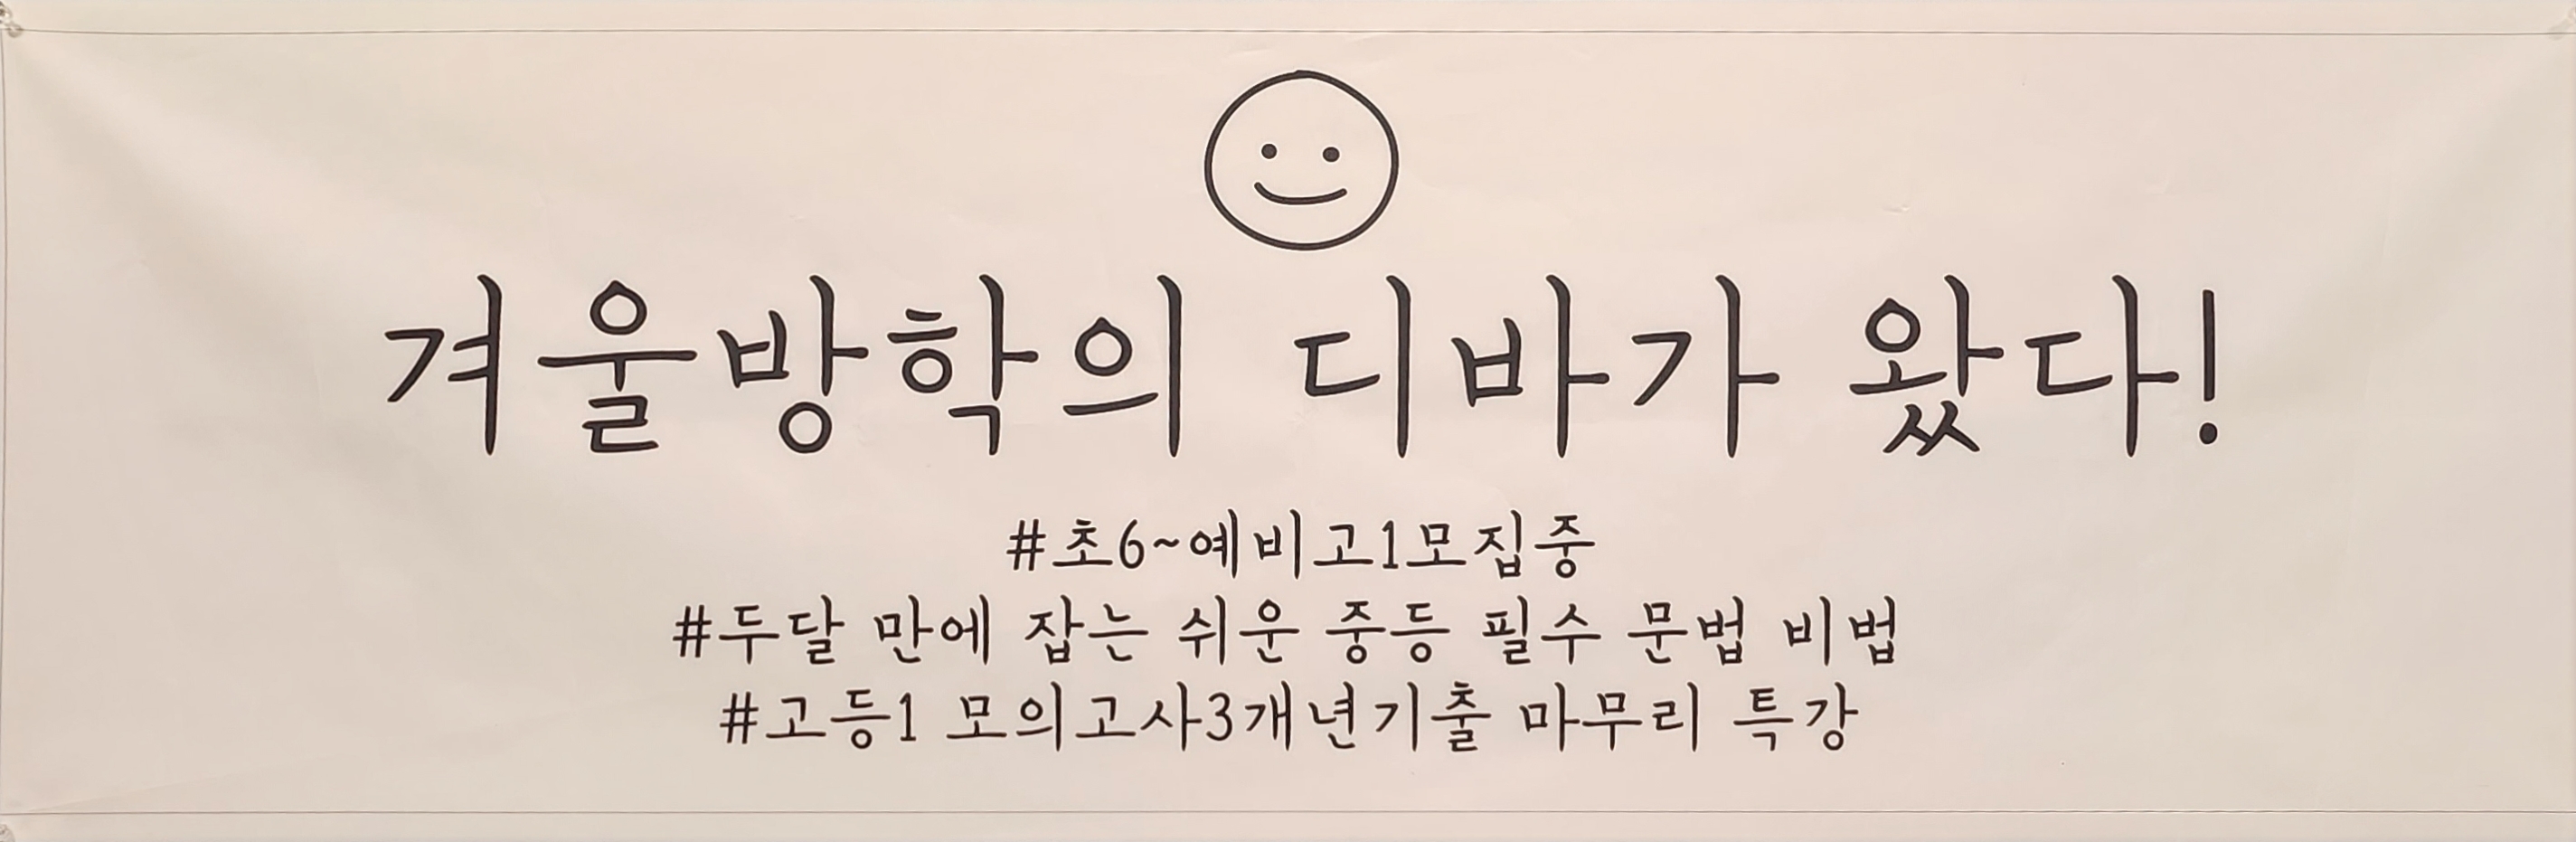 겨울방학의 디바가 왔다!
#초6~예비고1모집중
#두달 만에 잡는 쉬운 중등 필수 문법 비법
#고등1 모의고사3개년기출 마무리 특강